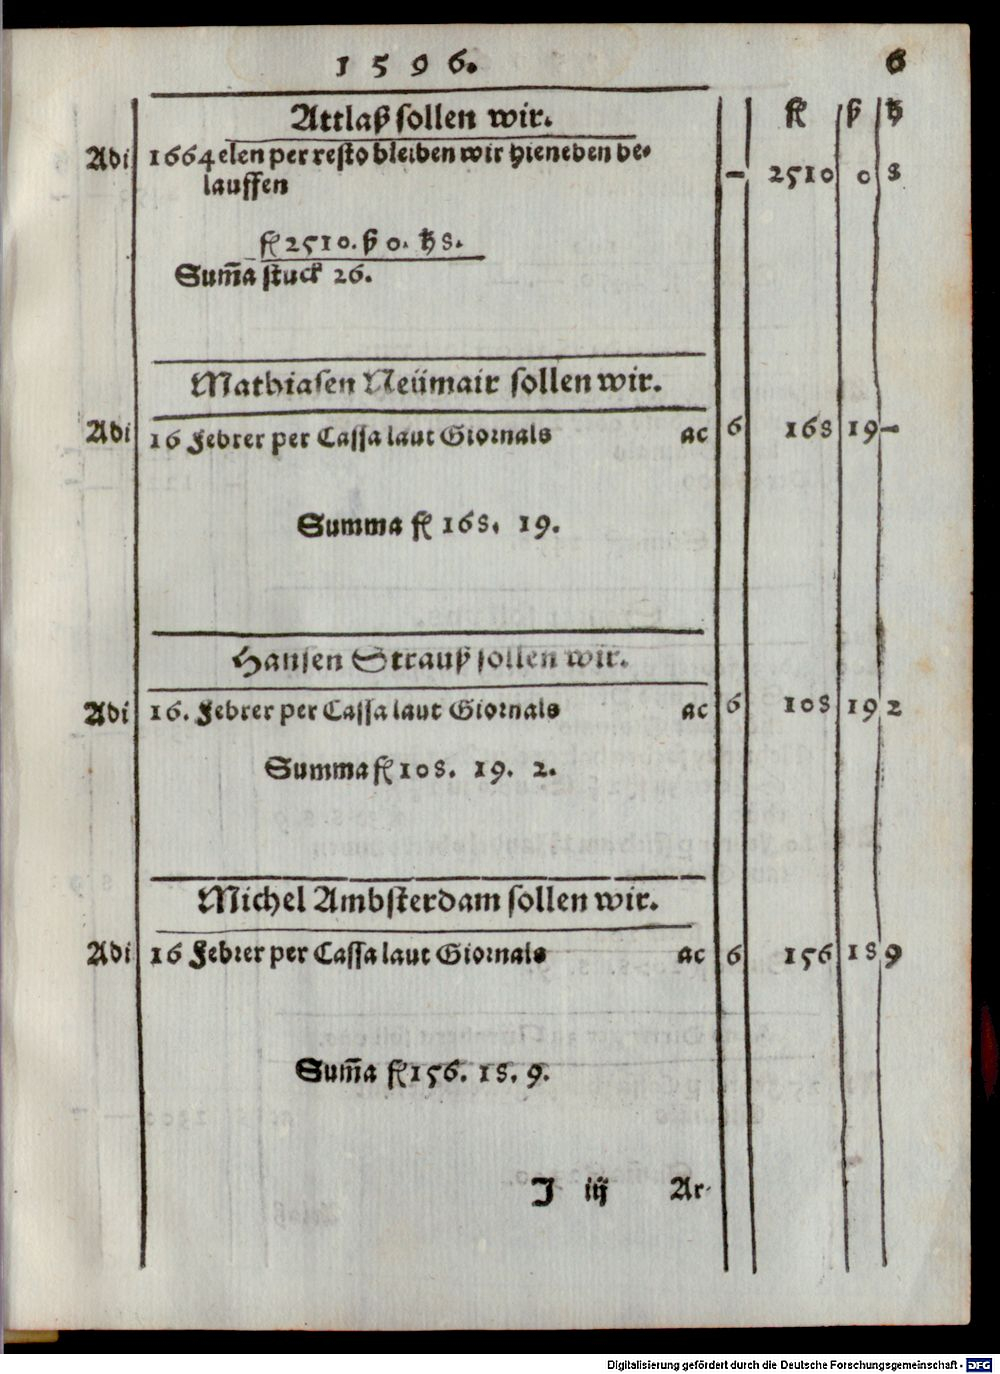 1596. 6
Attlaß sollen wir. fl ß ₰
Adi 1664 elen per resto bleiben wir hieneben be-
lauffen – 2510 0 8
fl 2510. ß 0. ₰ 8.
Sum̃a stuck 26.
Mathiasen Neümair sollen wir.
Adi 16 Febrer per Cassa laut Giornals ac 6 168 19 –
Summa fl 168. 19.
Hansen Strauß sollen wir.
Adi 16. Febrer per Cassa laut Giornals ac 6 108 19 2
Summa fl 108. 19. 2.
Michel Ambsterdam sollen wir.
Adi 16 Febrer per Cassa laut Giornals ac 6 156 18 9
Sum̃a fl 156. 18. 9.
J iij Ar-
Digitalisierung gefördert durch die Deutsche Forschungsgemeinschaft - DFG